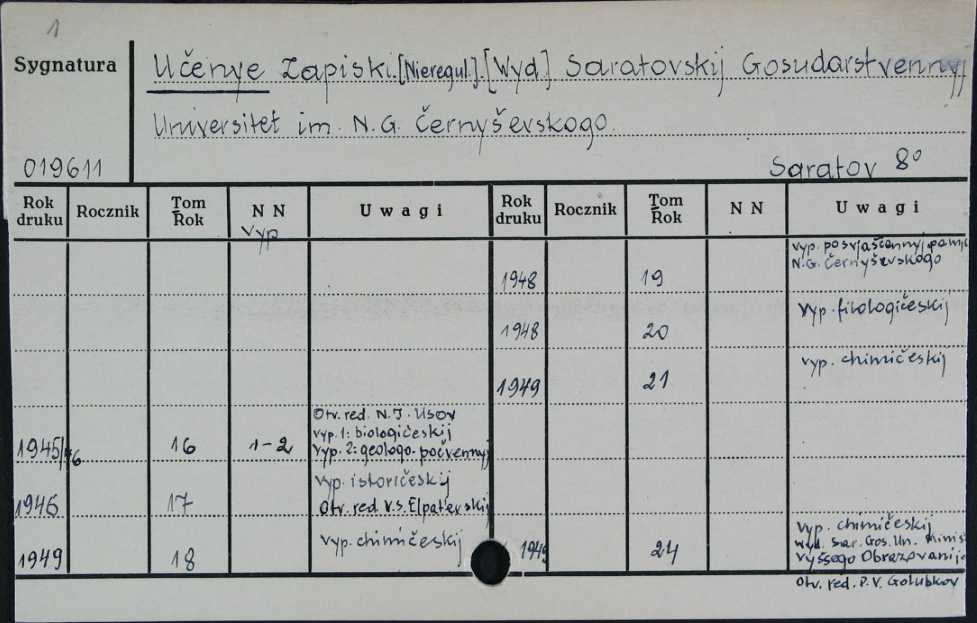 1
Sygnatura
Učenye Zapiski. [Nieregul.] [Wyd.] Saratovskij Gosudarstvennyj
Universitet im. N.G. Černyševskogo.
019611
Saratov 8°
Rok druku Rocznik Tom Rok N N Uwagi Rok druku Rocznik Tom Rok N N Uwagi
Vyp
1948 19 vyp. posvjaščennyj pamj
N.G. Černyševskogo
1948 20 vyp. filologičeskij
1949 21 vyp. chimičeskij
1945/46 16 1-2 Otv. red. N.I. Usov
vyp. 1: biologičeskij
vyp. 2: geologo-počvennyj
1946 17 vyp. istoričeskij
Otv. red. V.S. Elpatevskij
1949 18 vyp. chimičeskij
1949 24 vyp. chimičeskij
wyd. Sar. Gos. Un. Minist
vysšego Obrazovanija
Otv. red. P.V. Golubkov